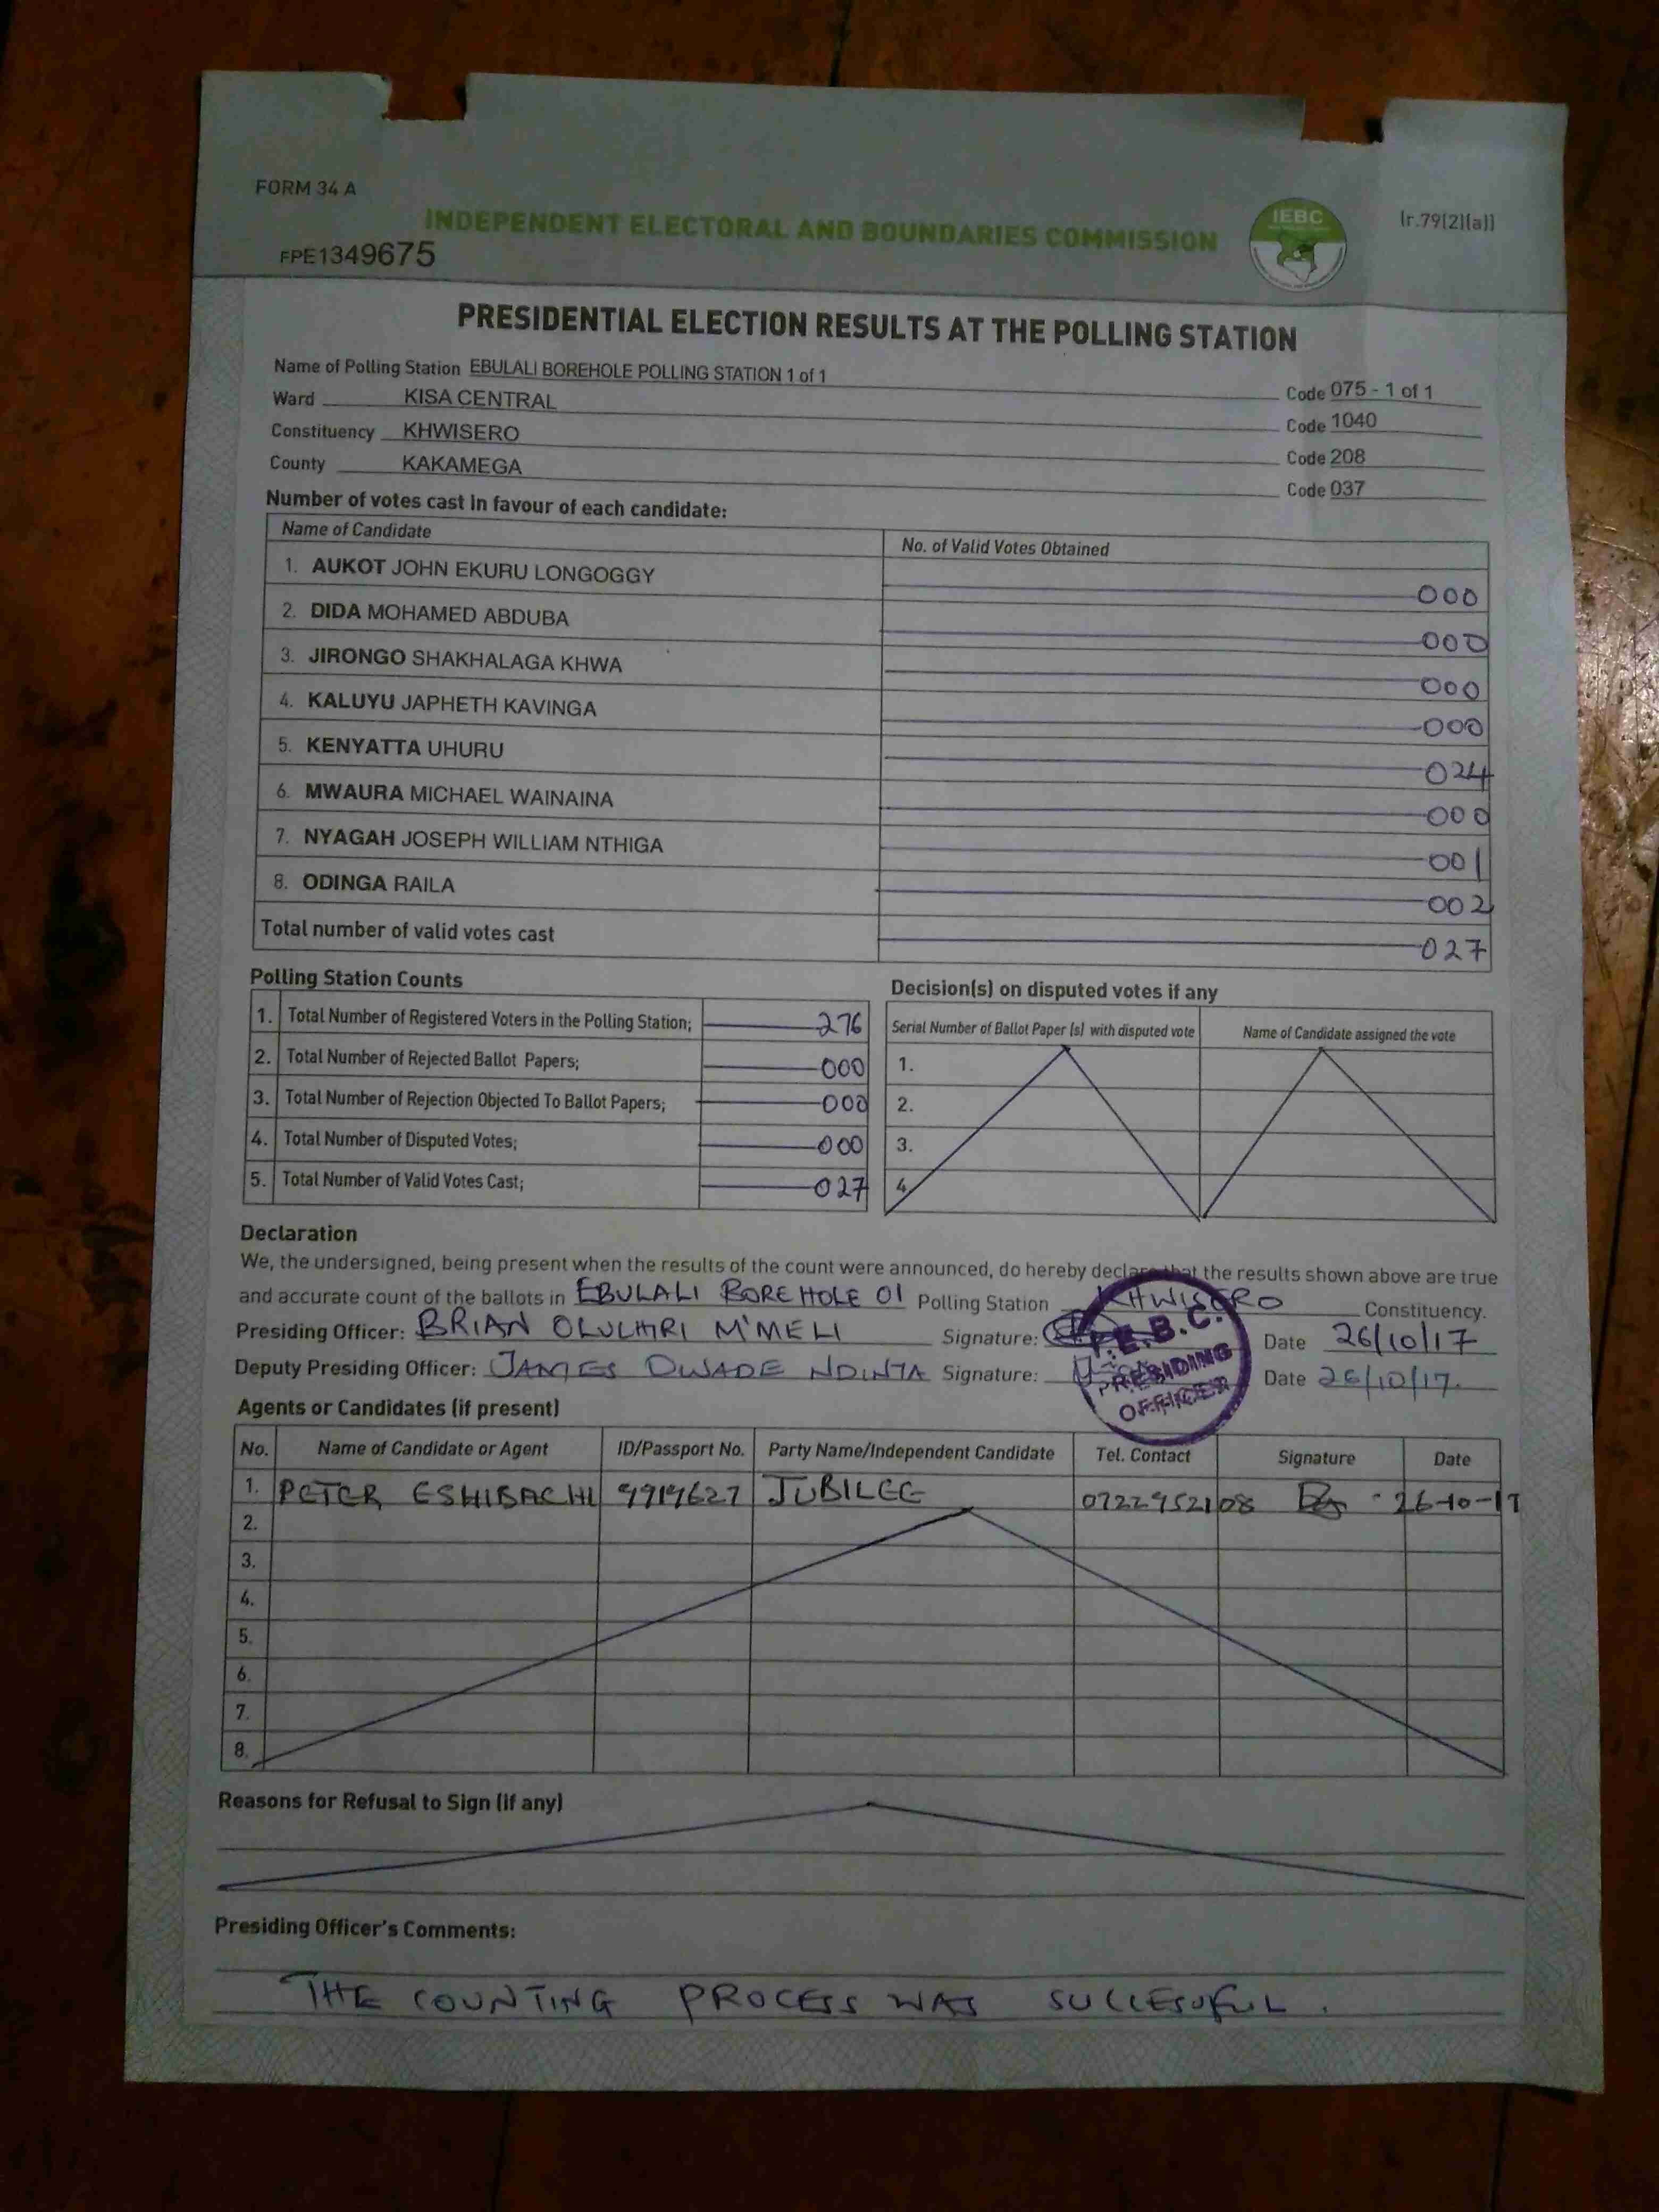 FORM 34 A
INDEPENDENT ELECTORAL AND BOUNDARIES COMMISSION
IEBC
(r.79(2)(a))
FPE1349675
PRESIDENTIAL ELECTION RESULTS AT THE POLLING STATION
Name of Polling Station EBULALI BOREHOLE POLLING STATION 1 of 1 Code 075 - 1 of 1
Ward KISA CENTRAL Code 1040
Constituency KHWISERO Code 208
County KAKAMEGA Code 037
Number of votes cast in favour of each candidate:
Name of Candidate No. of Valid Votes Obtained
1. AUKOT JOHN EKURU LONGOGGY 000
2. DIDA MOHAMED ABDUBA 000
3. JIRONGO SHAKHALAGA KHWA 000
4. KALUYU JAPHETH KAVINGA 000
5. KENYATTA UHURU 024
6. MWAURA MICHAEL WAINAINA 000
7. NYAGAH JOSEPH WILLIAM NTHIGA 001
8. ODINGA RAILA 002
Total number of valid votes cast 027
Polling Station Counts
1. Total Number of Registered Voters in the Polling Station; 276
2. Total Number of Rejected Ballot Papers; 000
3. Total Number of Rejection Objected To Ballot Papers; 000
4. Total Number of Disputed Votes; 000
5. Total Number of Valid Votes Cast; 027
Decision(s) on disputed votes if any
Serial Number of Ballot Paper (s) with disputed vote Name of Candidate assigned the vote
1.
2.
3.
4.
Declaration
We, the undersigned, being present when the results of the count were announced, do hereby declare that the results shown above are true
and accurate count of the ballots in EBULALI BOREHOLE 01 Polling Station KHWISERO Constituency.
Presiding Officer: BRIAN OLUCHIRI M'MELI Signature: Date 26/10/17
Deputy Presiding Officer: JAMES OWADE NDINTA Signature: Date 26/10/17.
I.E.B.C.
PRESIDING
OFFICER
Agents or Candidates (if present)
No. Name of Candidate or Agent ID/Passport No. Party Name/Independent Candidate Tel. Contact Signature Date
1. PETER ESHIBACHI 9919627 JUBILEE 0722952108 26-10-17
2.
3.
4.
5.
6.
7.
8.
Reasons for Refusal to Sign (if any)
Presiding Officer's Comments:
THE COUNTING PROCESS WAS SUCCESSFUL.